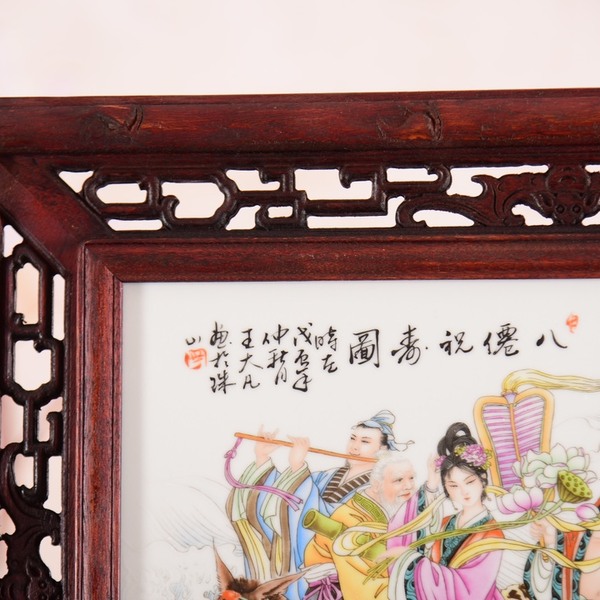 八僊祝壽圖
時在
戊寅年
仲秋月
王大凡
畫於珠
山